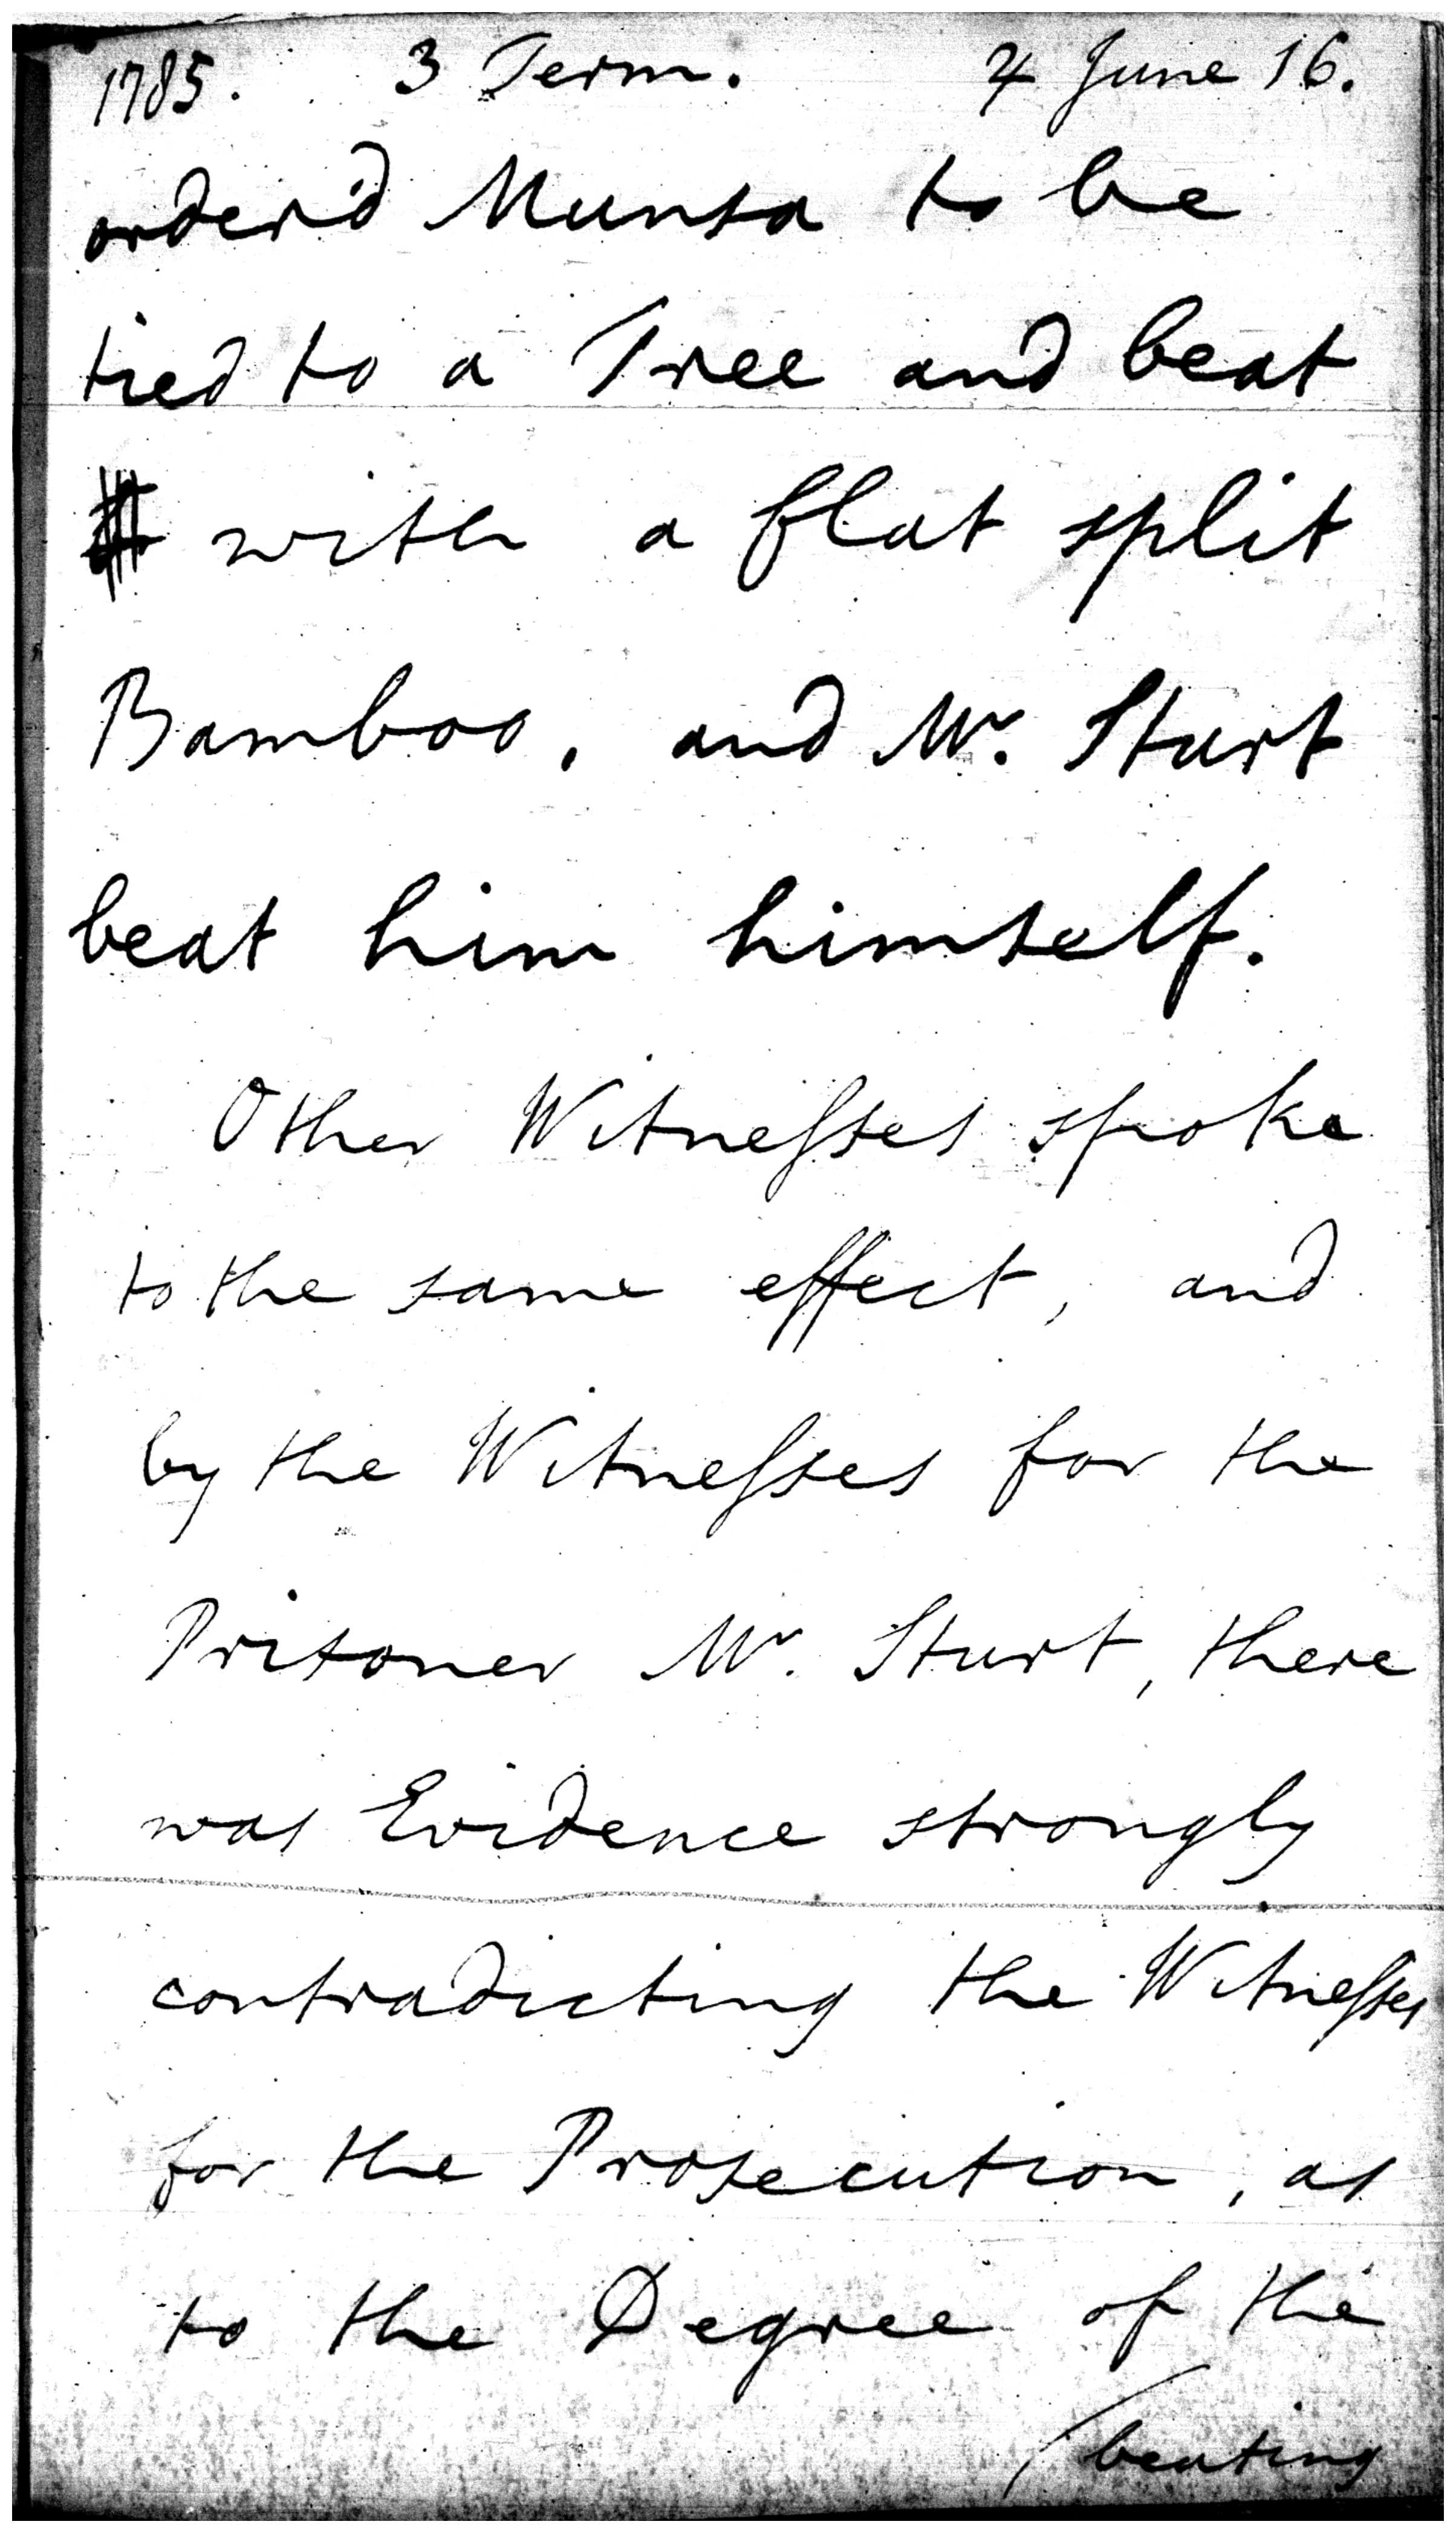 1785. 3 Term. 4 June 16.
order'd Munsa to be
tied to a Tree and beat
with a flat split
Bamboo, and Mr. Sturt
beat him himself.
Other Witneſses spoke
to the same effect, and
by the Witneſses for the
Prisoner Mr. Sturt, there
was Evidence strongly
contradicting the Witneſses
for the Prosecution, as
to the Degree of the
/beating